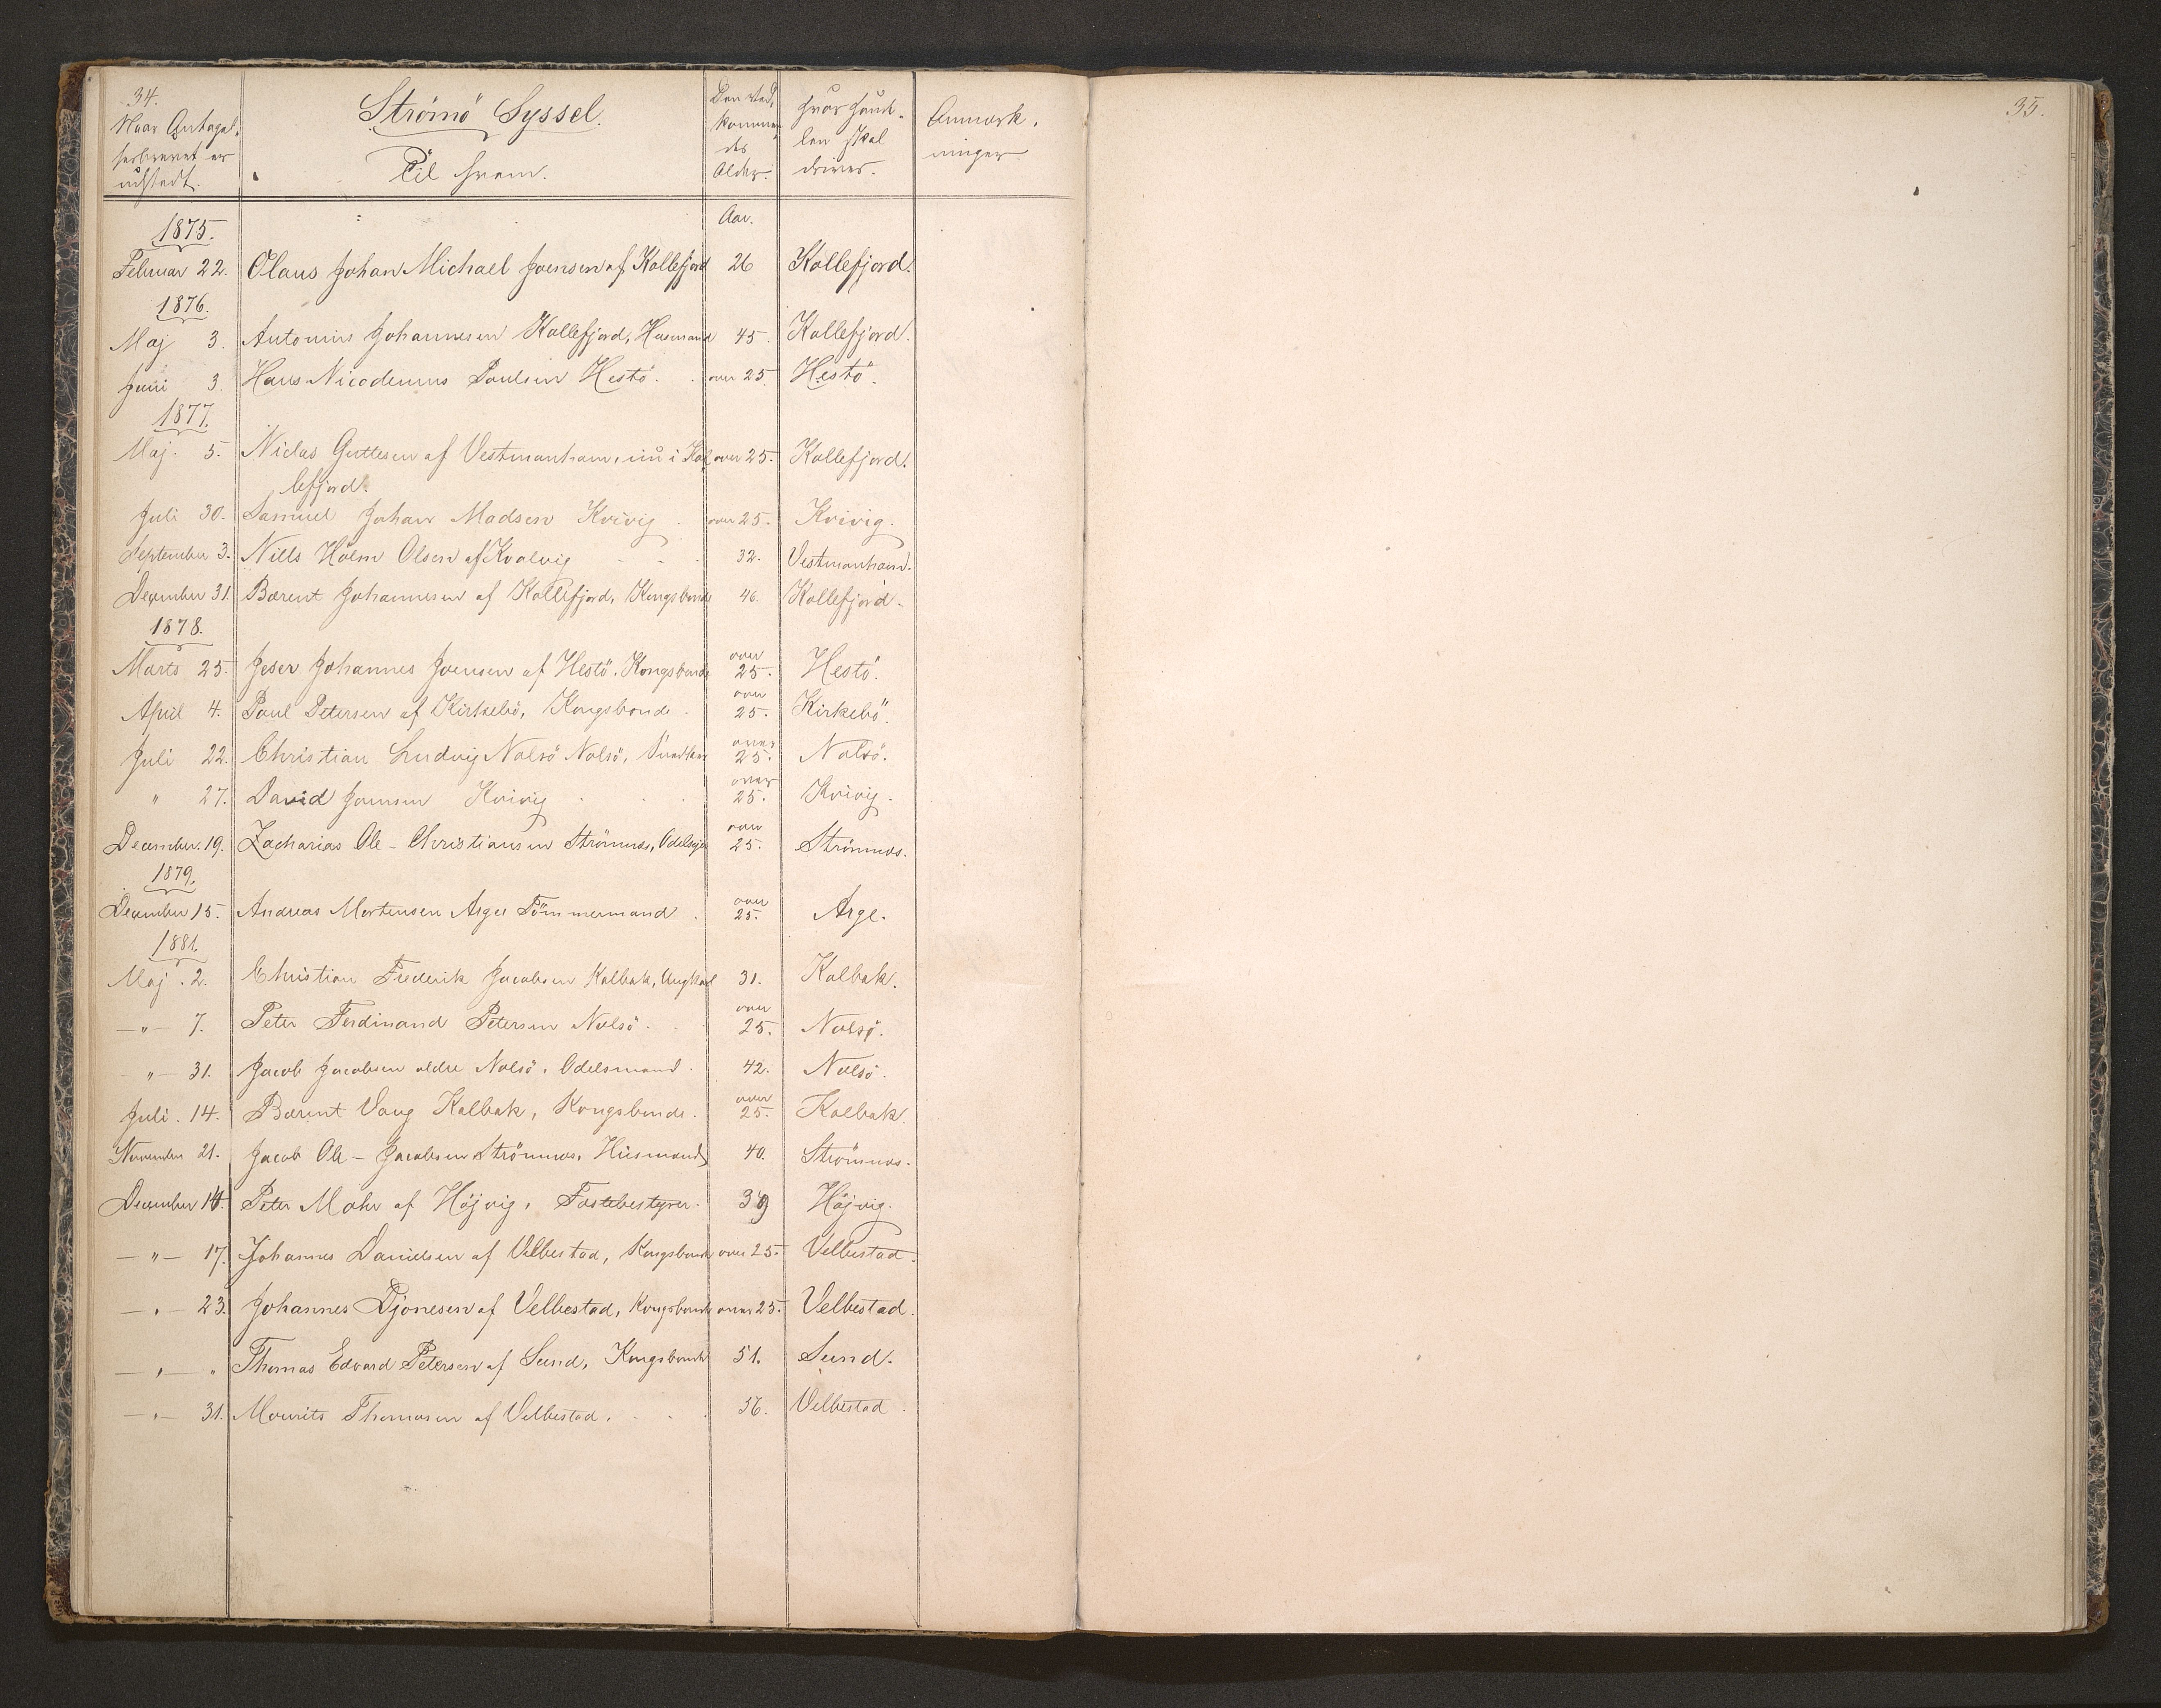 34.
35.
Naar Antagel, Strömö Syssel. Den Ved, Hvor Hand- Anmærk,
sesbrevet er Til Hvem. kommen len skal ninger
udstedt. des Alder. drives.
Aar.
1875.
Februar 22. Olaus Johan Michael Joensen af Kollefjord 26 Kollefjord.
1876.
Maj 3. Antonius Johannesen Kollefjord, Husmand 45. Kollefjord.
Juni 3. Hans Nicodemus Poulsen Hestö. over 25. Hestö.
1877.
Maj. 5. Niclas Guttesen af Vestmanhavn, nu i Kol over 25. Kollefjord.
lefjord.
Juli 30. Samuel Johan Madsen Kvivig. over 25. Kvivig.
September 3. Niels Holm Olsen af Kvalvig 32. Vestmanhavn.
December 31. Barent Johannesen af Kollefjord, Kongsbonde 46. Kollefjord.
1878.
Marts 25. Joser Johannes Joensen af Hestö, Kongsbonde over 25. Hestö.
April 4. Poul Petersen af Kirkebö, Kongsbonde. over 25. Kirkebö.
Juli 22. Christian Ludvig Nolsö Nolsö, over 25. Nolsö.
" 27. David Joensen Kvivig over 25. Kvivig.
December. 19. Zacharias Ole-Christiansen Strömnæs, Odelsejer over 25. Strömnæs.
1879.
December 15. Andreas Mortensen Arge Tömmermand. over 25. Arge.
1881.
Maj. 2. Christian Frederik Jacobsen Kalbak, Ungkarl 31. Kalbak.
-"- 7. Peter Ferdinand Petersen Nolsö. over 25. Nolsö.
-"- 31. Jacob Jacobsen ældre Nolsö, Odelsmand. 42. Nolsö.
Juli. 14. Barent Vang Kalbak, Kongsbonde. over 25. Kalbak.
November 21. Jacob Ole-Jacobsen Strömnæs, Husmand 40. Strömnæs.
December 14. Peter Mohr af Höjvig, Fæstebestyrer. 39 Höjvig.
-"- 17. Johannes Danielsen af Velbestad, Kongsbonde over 25. Velbestad.
-"- 23. Johannes Djonesen af Velbestad, Kongsbonde over 25. Velbestad.
-"- " Thomas Edvard Petersen af Sund, Kongsbonde 51. Sund.
-"- 31. Mourits Thomasen af Velbestad. 36. Velbestad.